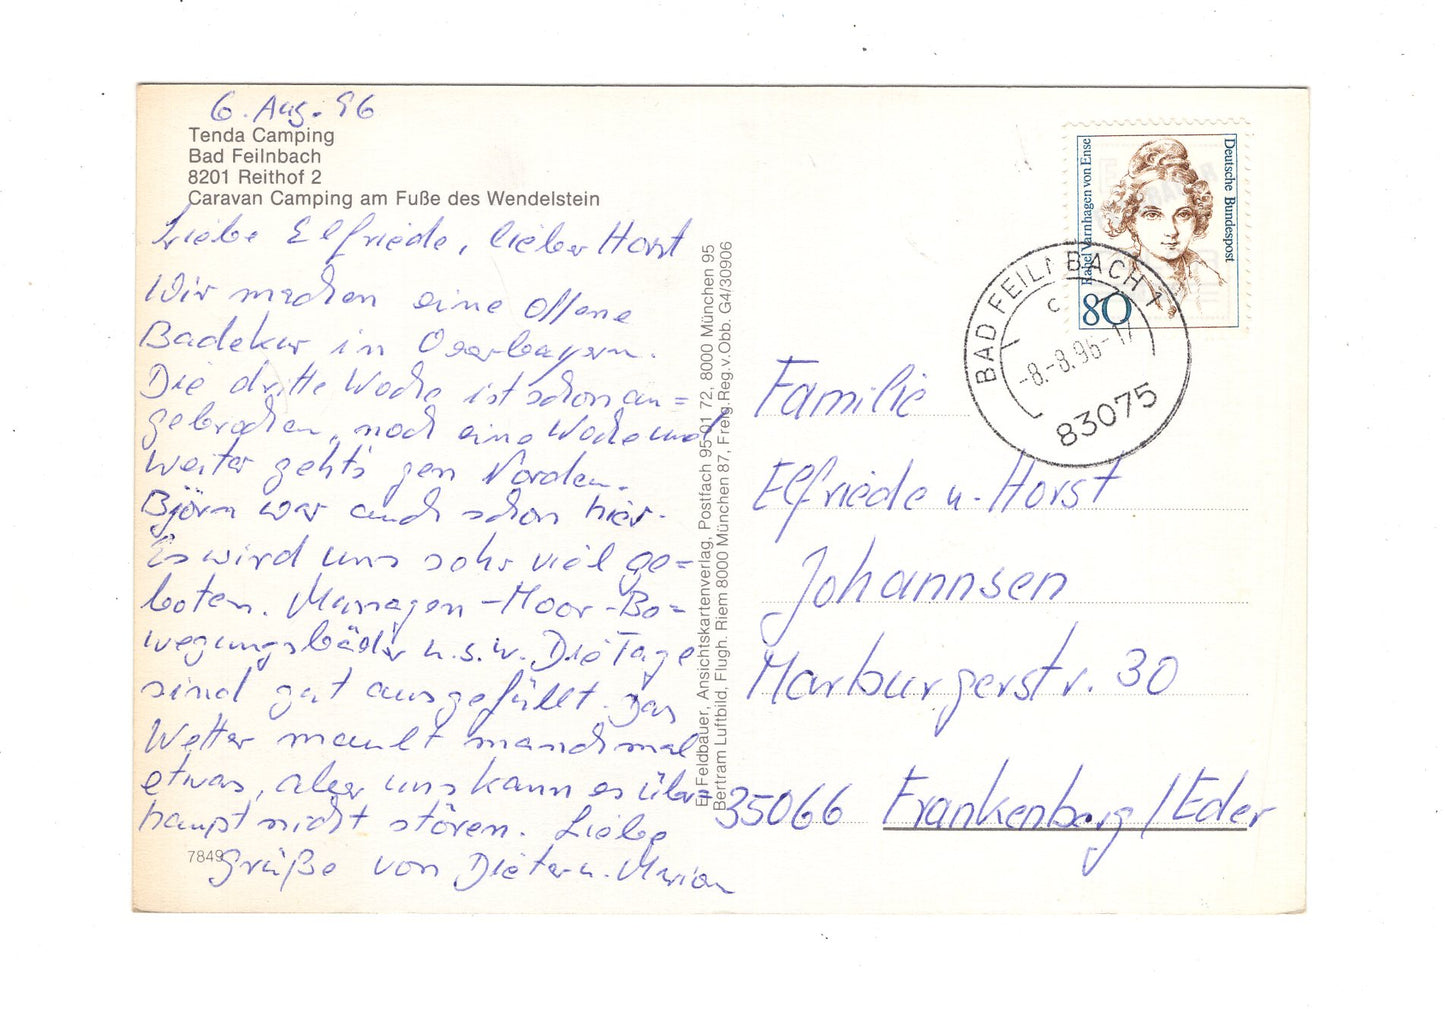 6. Aug. 96
Tenda Camping
Bad Feilnbach
8201 Reithof 2
Caravan Camping am Fuße des Wendelstein
Liebe Elfriede, lieber Horst
Wir machen eine offene
Badekur in Oberbayern.
Die dritte Woche ist schon an=
gebrochen, noch eine Woche und
weiter geht's gen Norden.
Björn war auch schon hier.
Es wird uns sehr viel ge=
boten. Massagen-Moor-Be=
wegungsbäder u.s.w. Die Tage
sind gut ausgefüllt. Das
Wetter mault manchmal
etwas, aber uns kann es über=
haupt nicht stören. Liebe
7849
Grüße von Dieter u.
E. Feldbauer, Ansichtskartenverlag, Postfach 95 01 72, 8000 München 95
Bertram Luftbild, Flugh. Riem 8000 München 87, Freig.Reg.v.Obb. G4/30906
Rahel Varnhagen von Ense
Deutsche Bundespost
80
BAD FEILNBACH 1
c
-8.-8.96-17
83075
Familie
Elfriede u. Horst
Johannsen
Marburgerstr. 30
35066 Frankenberg/Eder